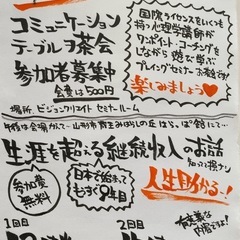 コミュニケーション
テーブルヲ茶会
参加者募集中
会費は500円
国際ライセンスをいくつも
持つ心理学講師が
ワンポイント・コーチングを
しながら遊び学ぶ
プレイングセミナー
楽しみましょう♥
場所 ビジョンクリエイト セミナールーム
午後は会場かえて〜山形市
生涯を超える継続収入のお話
知って得
参加費
無料
日本で始って
もすぐ9年目
人生助かる〜!
1回目
2回目
内容ですよ!